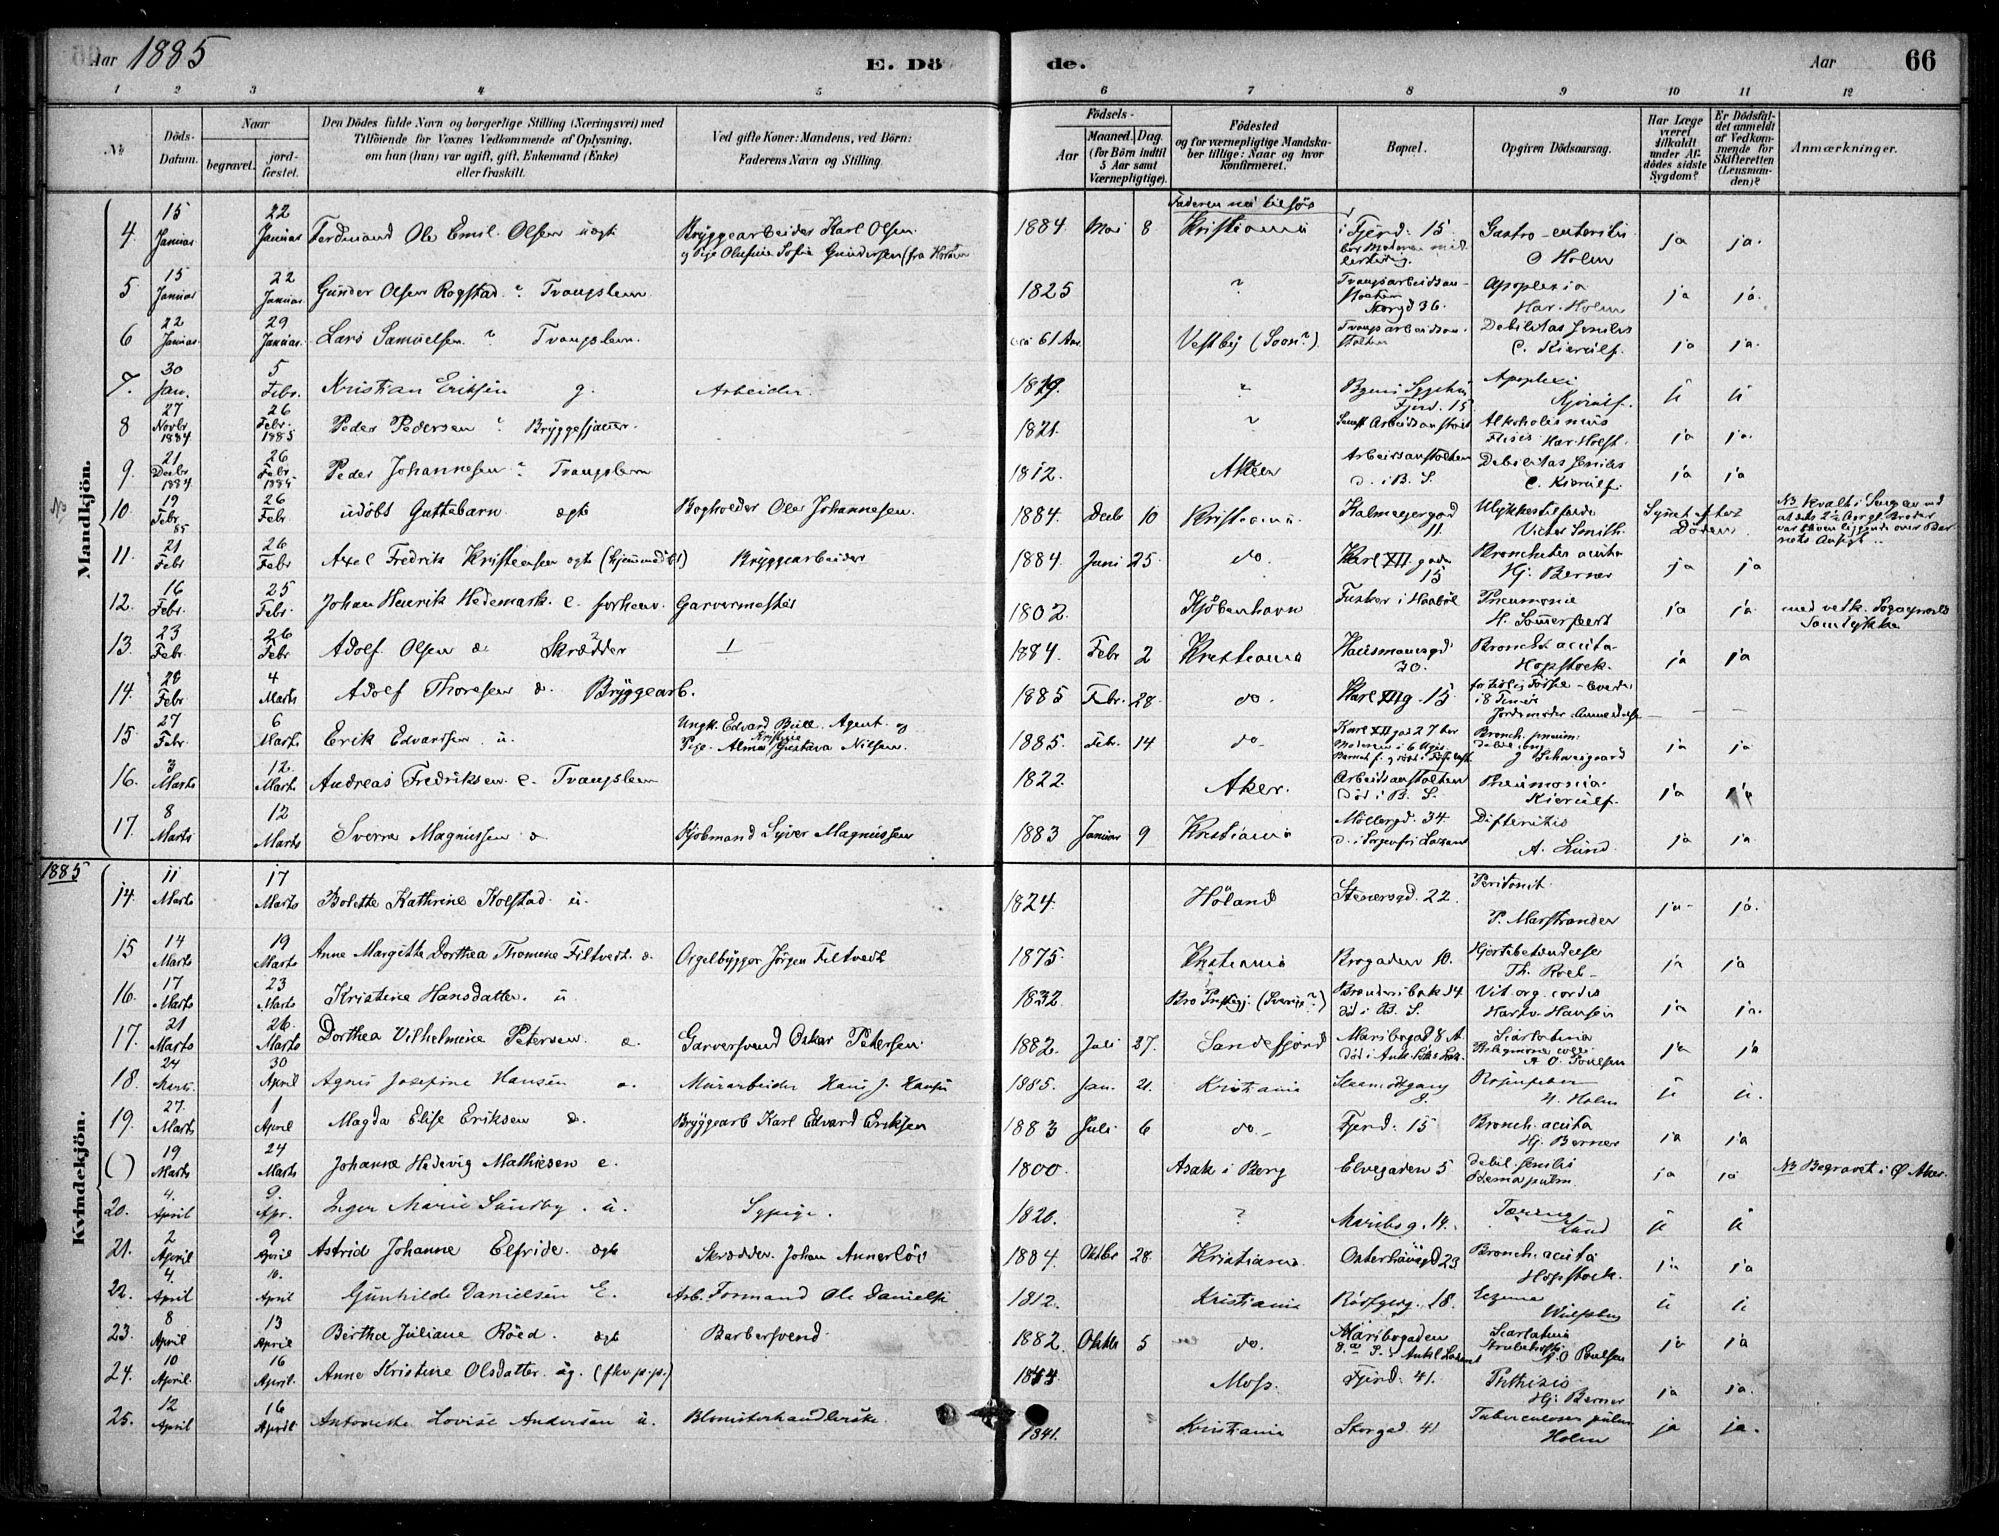 Aar 1885
E. Dö
de.
Aar
66
1 2 3 4 5 6 7 8 9 10 11 12
No
Döds-Datum.
Naar
begravet.
jordfæstet.
Den Dödes fulde Navn og borgerlige Stilling (Næringsvei) med
Tilföiende for Voxnes Vedkommende af Oplysning,
om hun (han) var ugift, gift, Enkemand (Enke)
eller fraskilt.
Ved gifte Koner: Mandens, ved Börn:
Faderens Navn og Stilling.
Födsels-
Aar
Maaned. Dag.
(for Börn indtil
5 Aar samt
Værnepligtige).
Födested
og for værnepligtige Mandskaber tillige: Naar og hvor
konfirmeret.
Bopæl.
Opgiven Dödsaarsag.
Har Læge
været
tilkaldt
under Afdödes sidste
Sygdom?
Er Dödsfaldet anmeldt
af Vedkommende for
Skifteretten
(Lensmanden)?
Anmærkninger.
Mandkjön.
4 15 Januar 22 Januar Ferdinand Ole Emil Olsen uægte Bryggearbeider Karl Olsen 1884 Mai 8 Kristiania Fjerd. 15 Gastro-enteritis ja ja.
og Pige Olufine Sofie Gundersen (fra O Holm
5 15 Januar 22 Januar Gunder Olsen Rogstad ? Tvangslem 1825 ? Tvangsarbeidsanstalten Storgd 36. Apoplexia Har. Holm ja ja.
6 22 Januar 29 Januar Lars Samuelsen ? Tvangslem ca 61 Aar Vestby (Soon?) Tvangsarbeidsanstalten Debilitas senilis C. Kierulf. ja ja.
7. 30 Jan. 5 Febr. Kristian Eriksen g. Arbeider. 1819. ? Byens Sygehus Fjerd. 15 Apoplexi Kjerulf. ú ú
8 27 Novbr 1884 26 Febr. 1885 Peder Pedersen ? Bryggesjauer. 1821. ? Arbeidsanstalt Alkoholismus Har. Holst. ja ja.
9. 21 Decbr 1884 26 Febr 1885 Peder Johannesen ? Tvangslem 1812. Aker Arbeidsanstalten d. i B. S. Debilitas senilis C. Kierulf. ja ja
10. 19 Febr 85 26 Febr udöbt Guttebarn ægte Bogholder Ole Johannesen. 1884. Decbr 10 Kristiania Holmeyergad 11. Ulykkestilfælde Victor Smith. Synet efter Döden NB Kvalt i Sengen ved
at dets 2 1/2 Aar gl. Broder
var bleven liggende over Barnets Ansigt.
11. 21 Febr 26 Febr Axel Fredrik Kristensen ægte (hjemmedöbt) Bryggearbeider 1884. Juni 25 do. Karl XII gade 15 Bronchitis acuta Hj. Berner ja ja
12. 16 Febr. 25 Febr. Johan Henrik Hedemark. e. forhenv. Garvermester 1802. Kjöbenhavn Pneumonie ja ja med vedk. Sogneprests
Samtykke
13. 23 Febr 26 Febr Adolf Olsen æ Skrædder 1884. Febr 2 Kristiania Hausmansgd 30. Bronch. acuta Hopstock. ja ja
14. 28 Febr 4 Marts Adolf Thoresen æ. Bryggearb. 1885 Febr. 28 do. Karl XII g. 15 for tidlig Födsel - levede
i 8 Timer — — —
15 27 Febr. 6 Marts Erik Edvardsen. u. Ungk. Edvard Bull. Agent. og
Pige Alma Kristine Gustava Nilsen. 1885. Feb. 14 do. Karl XII gad 27 Bronch. pneum. J Schweigaard ja ja
16. 3 Marts 12. Marts Andreas Fredriksen e. Tvangslem 1822. Aker. Arbeidsanstalten Död i B. S. Pneumonia Kierulf. ja ja
17. 8 Marts 12 Marts Sverre Magnussen æ Kjöbmand Syver Magnussen 1883 Januar 9 Kristiania Möllergd. 34 d. i Sorgenfri Lazaret Difteritis A. Lund. ja ja.
1885
Kvindekjön.
14. 11 Marts 17 Marts Bolette Kathrine Kolstad u. 1824. Höland Stenersgd 22. Peritonit. P. Marstrander ja ja.
15 14 Marts 19 Marts Anne Margitte Dorthea Thomine Filtvedt æ. Orgelbygger Jörgen Filtvedt 1875. Kristiania Brogaden 10. Hjertebetændelse Th. Roll ja ja
16. 17 Marts 23 Marts Kristine Hansdatter. u. 1832. Bro Prestegj. (Sverige?) Brenneribak 14 död i B. S. Vit. org. cordis Hartv. Hansen ja ja.
17. 21 Marts 26. Marts Dorthea Vilhelmine Petersen æ. Garversvend Oskar Petersen 1882. Juli 27. Sandefjord Maribogad 8 A Scarlatina A O Poulsen ja ja
18. 24 Marts. 30 April Agnes Josefine Hansen æ. Murarbeider Hans J. Hansen 1885. Jan. 21. Kristiania 8. Rosenfeber H. Holm ú ú.
19. 27. Marts 1 April Magda Elise Eriksen æ. Bryggearb Karl Edvard Eriksen 1883 Juli 6 do. Fjerd. 15 Bronch. acuta Hj. Berner ja ja
( ) 19 Marts 24 Marts Johanne Hedevig Mathiesen e. 1800. Asak i Berg Elvegaden 5 debil. senilis ødema pulm. ja ja NB Begravet i Ø Aker
20. 4. April 9. Apr. Inger Marie Sundby. u. Sypige. 1820. ? Maribog. 14. Tæring Lund ú ú
21. 2 April 9 April Astrid Johanne Elfride. ægte Skrædder. Johan Annerlöv 1884. Oktbr 28 Kristiania. Osterhausgd 23 Bronch. acuta Hopstock. ja ja
22. 4. April 10. April Gunhilde Danielsen E. Arb. Formand Ole Danielsen 1812. Kristiania 18. Eczema ú ú
23. 8 April 13 April Berthe Juliane Röed. ægte Barbersvend. 1882 Oktbr 5 do. Maribogaden Scarlatina A O Poulsen ja ja
24. 10 April 16 April. Anne Kristine Olsdatter. ug. (fkv. p.p.) 1854. Moss. Fjerd. 41. Phthisis Hj. Berner ja ja.
25. 12 April 16 April Antonette Lovise Andersen u. Blomsterhandlerske 1841. Kristiania Storgad 41 Tuberculoses pulm Holm ja ja.